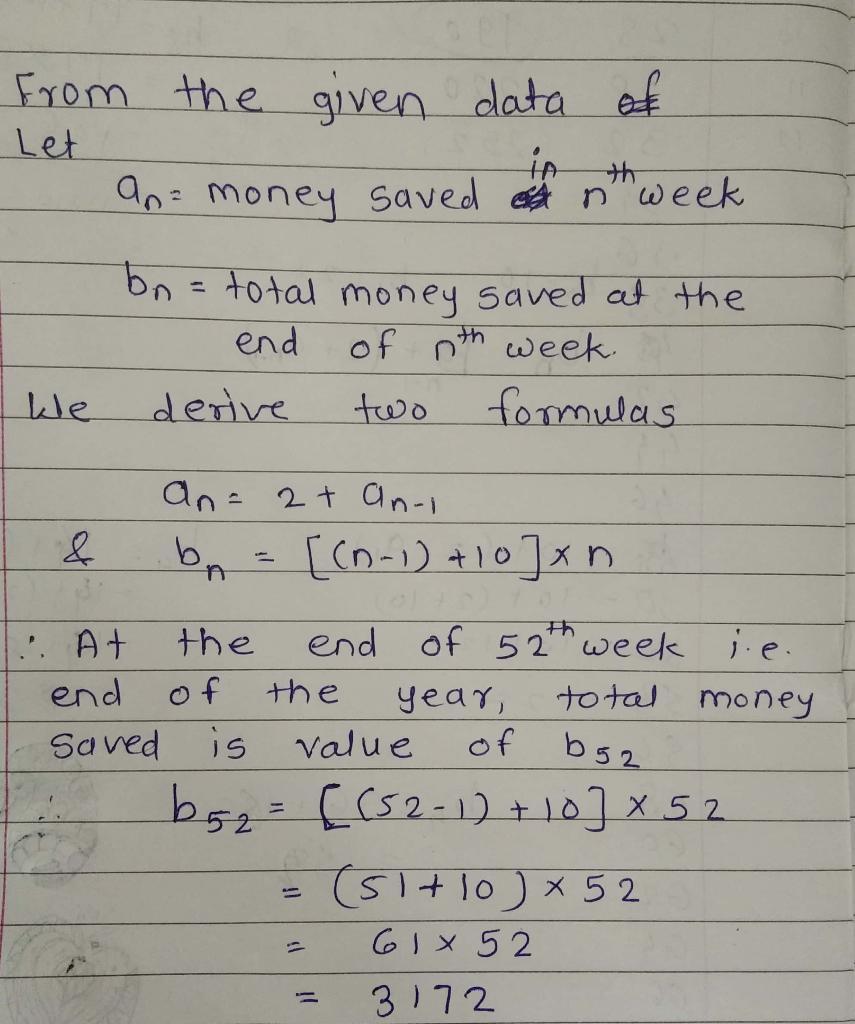 From the given data of
Let
in
an = money saved at nth week
bn = total money saved at the
end of nth week.
We derive two formulas
an = 2 + an-1
& bn = [(n-1) +10] x n
∴ At the end of 52th week i.e.
end of the year, total money
saved is value of b52
∴ b52 = [(52-1) + 10] x 52
= (51 + 10) x 52
= 61 x 52
= 3172